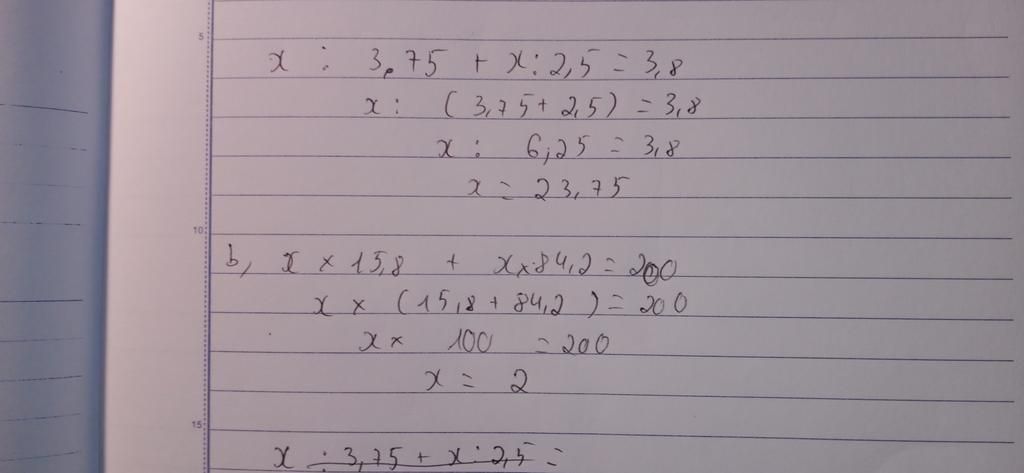 5
x : 3,75 + x : 2,5 = 3,8
x : (3,75 + 2,5) = 3,8
x : 6,25 = 3,8
x = 23,75
10
b, x × 15,8 + x × 84,2 = 200
x × (15,8 + 84,2) = 200
x × 100 = 200
x = 2
15
x : 3,75 + x : 2,5 =